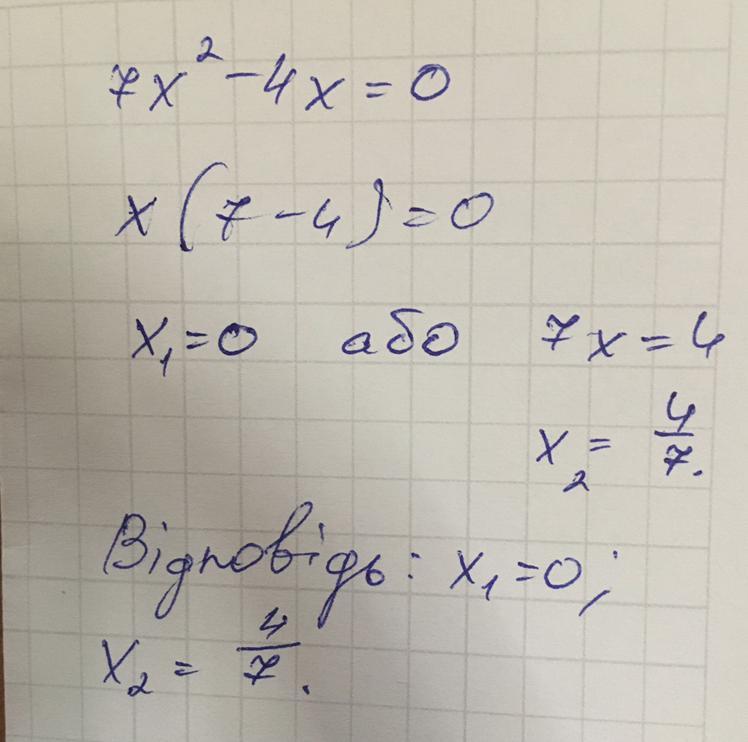 7x² - 4x = 0
x(7 - 4) = 0
x₁ = 0 або 7x = 4
x₂ = 4/7.
Відповідь: x₁ = 0;
x₂ = 4/7.